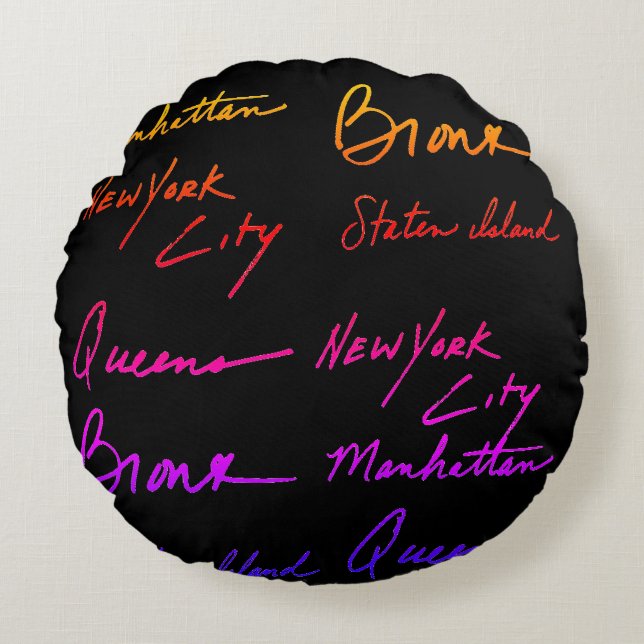 Manhattan Bronx
NEW YORK
City Staten Island
Queens NEW YORK
City
Bronx Manhattan
Island Queens